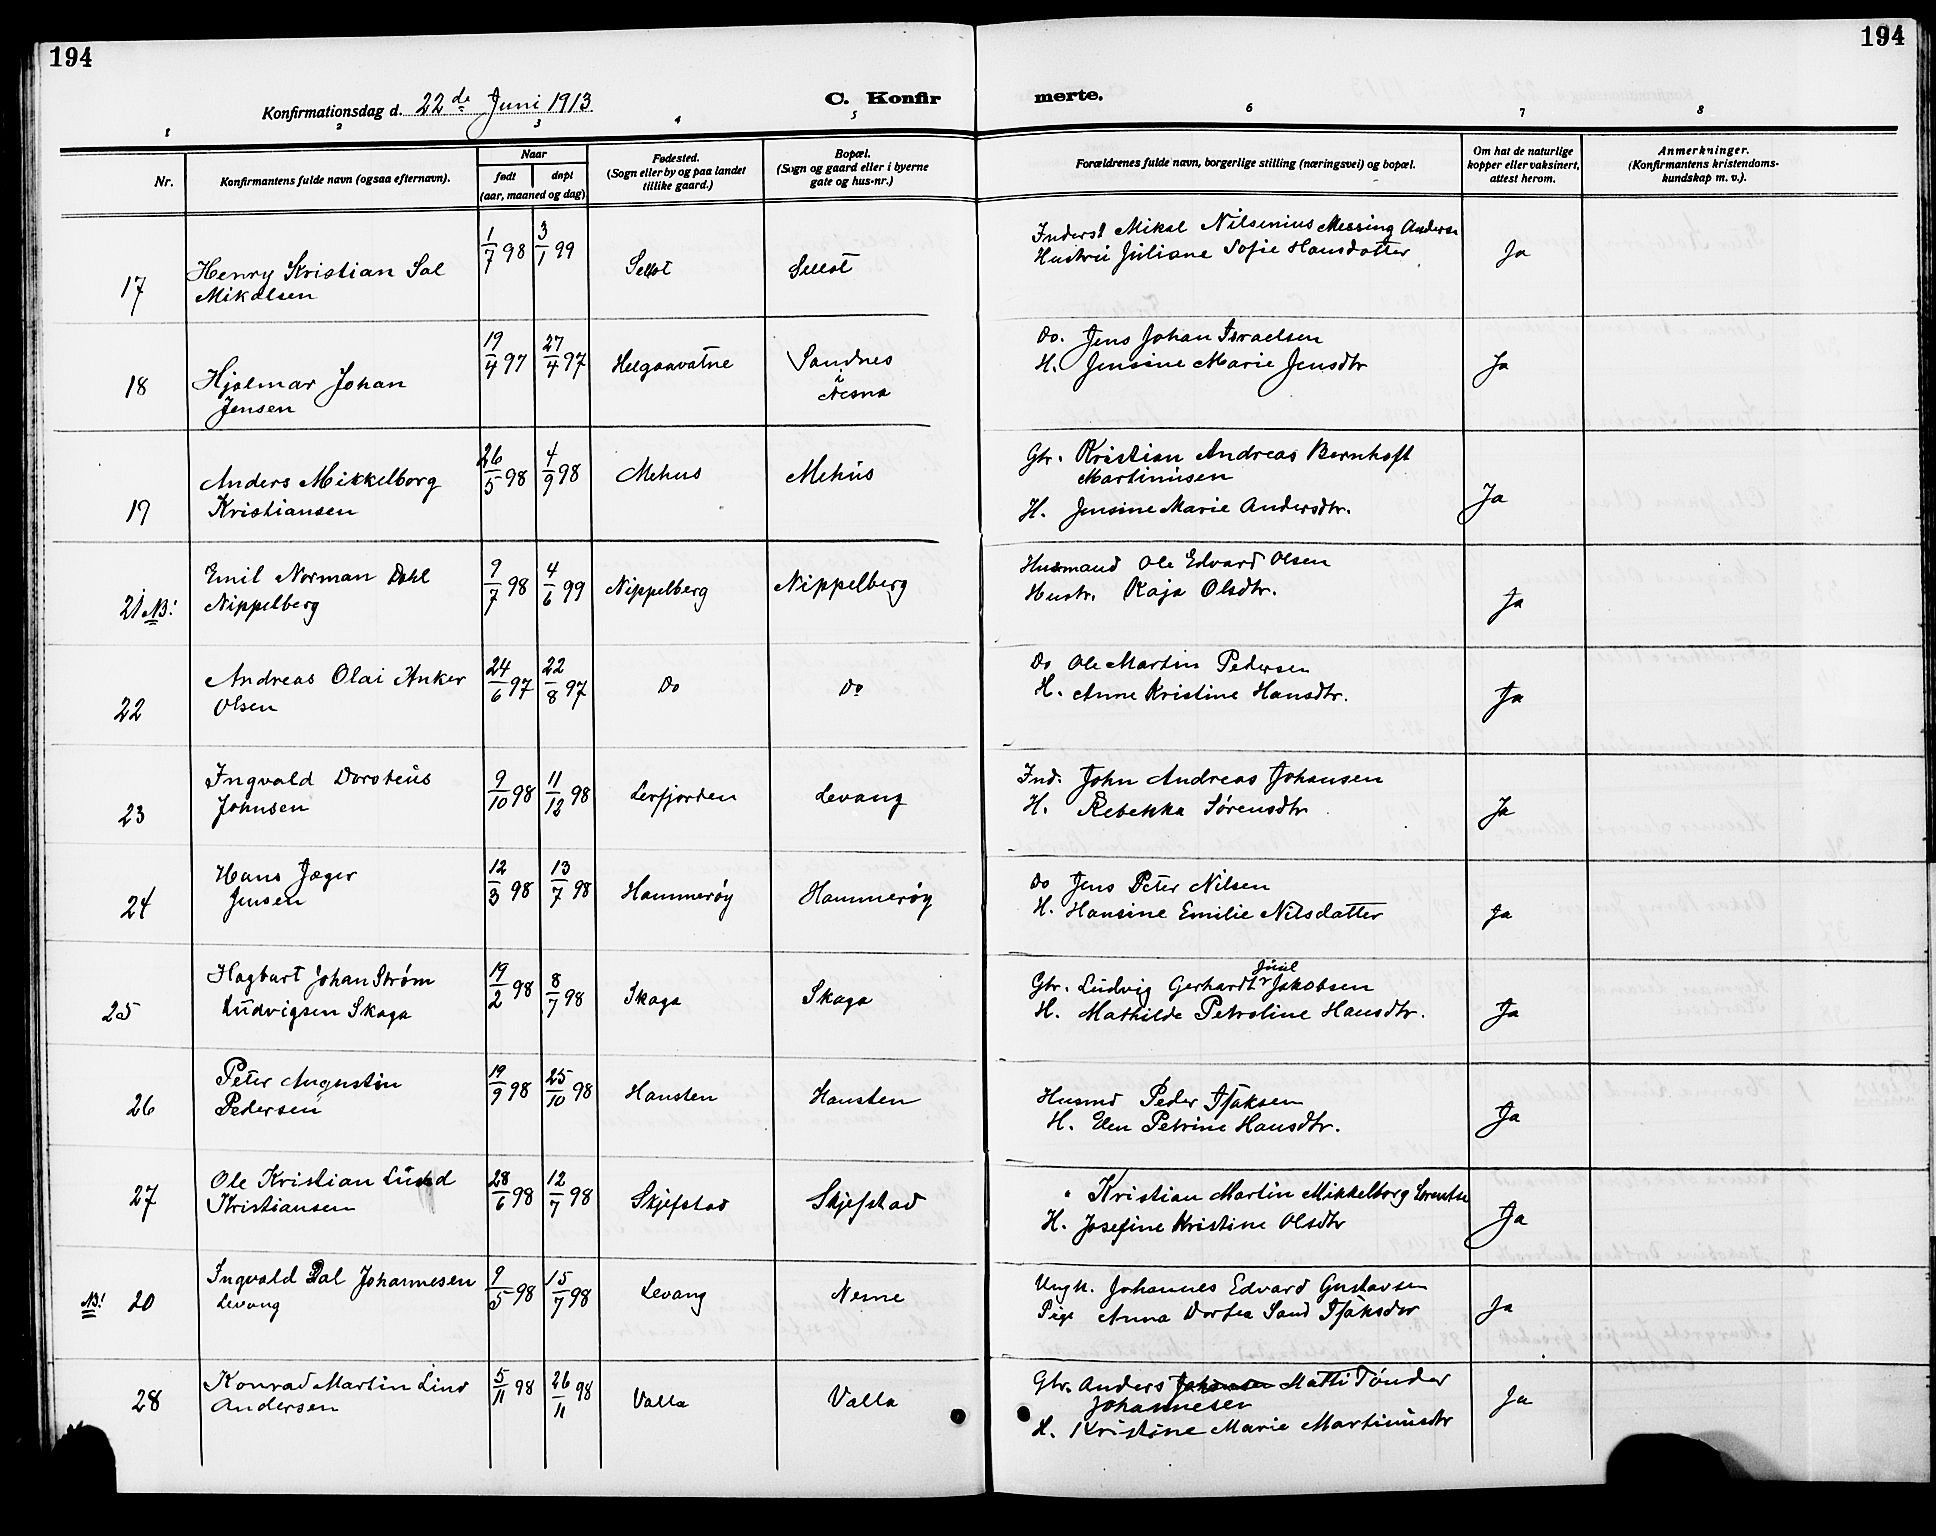 194
194
Konfirmationsdag d. 22de Juni 1913
C. Konfir
merte.
1 2 3 4 5 6 7 8
Nr.
Konfirmantens fulde navn (ogsaa efternavn).
Naar
født døpt
(aar, maaned og dag)
Fødested.
(Sogn eller by og paa landet
tillike gaard.)
Bopæl.
(Sogn og gaard eller i byerne
gate og hus-nr.)
Forældrenes fulde navn, borgerlige stilling (næringsvei) og bopæl.
Om hat de naturlige
kopper eller vaksinert,
attest herom.
Anmerkninger.
(Konfirmantens kristendoms-
kundskap m. v.).
17 Henry Kristian Sal 1/7 98 3/1 99 Inderst Mikal Nilsenius Messing Anders Ja
Mikalsen Hustru Juliane Sofie Hansdatter
18 Hjalmar Johan 19/4 97 27/4 97 Helgaavatne Sandnes Do. Jens Johan Israelsen Ja
Jensen i Nesna H. Jensine Marie Jensdtr
19 Anders Mikkelborg 26/5 98 4/9 98 Mehus Mehus Gbr. Kristian Andreas Bernhoft
Kristiansen Martinusen Ja
H. Jensine Marie Andersdtr.
21 NB! Emil Norman Dahl 9/7 98 4/6 99 Nippelberg Nippelberg Husmand Ole Edvard Olsen Ja
Nippelberg Hustr. Kaja Olsdtr.
22 Andreas Olai Anker 24/6 97 22/8 97 Do Do Do Ole Martin Pedersen Ja
Olsen H. Anne Kristine Hansdtr.
23 Ingvald Dorsteus 9/10 98 11/12 98 Lerfjorden Levang Ind. John Andreas Johansen Ja
Johnsen H. Rebekka Sørensdtr
24 Hans Jæger 12/3 98 13/7 98 Hammerøy Hammerøy Do Jens Peter Nilsen Ja
Jensen H. Hansine Emilie Nilsdatter
25 Hagbart Johan Strøm 19/2 98 8/7 98 Skaga Skaga Gbr. Ludvig Gerhardt Juul Jakobsen Ja
Ludvigsen Skaga H. Mathilde Petroline Hansdtr.
26 Peter Augustin 19/9 98 25/10 98 Hansten Hansten Husmd Peder Isaksen Ja
Pedersen H. Elen Petrine Hansdtr.
27 Ole Kristian Lund 28/6 98 12/7 98 Skjefstad Skjefstad " Kristian Martin Mikkelborg Ja
Kristiansen H. Josefine Kristine Olsdtr
NB! 20 Ingvald Dal Johannesen 9/5 98 15/7 98 Levang Nesne Ungk. Johannes Edvard Gustavsen Ja
Levang Pige Anna Dortea Sand Isaksdtr
28 Konrad Martin Lind 5/11 98 26/11 98 Valla Valla Gbr. Anders Johansen Matti Tønder Ja
Andersen Johannesen
H. Kristine Marie Martinusdtr